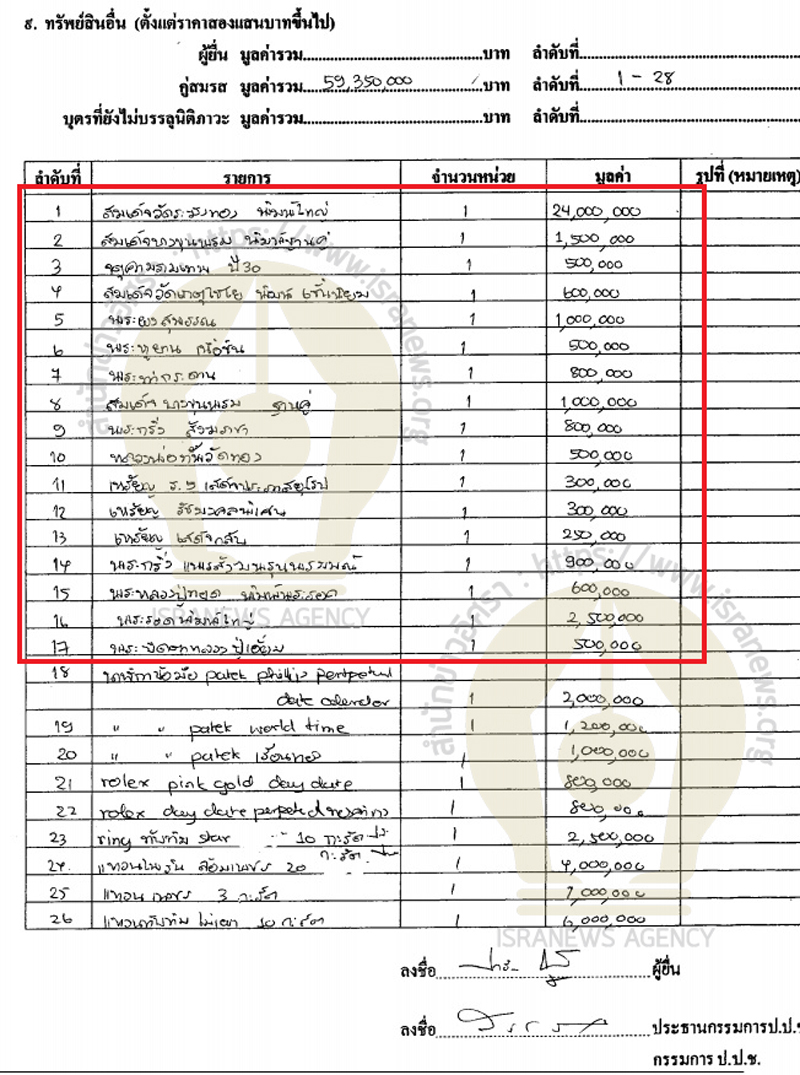 ๙. ทรัพย์สินอื่น (ตั้งแต่ราคาสองแสนบาทขึ้นไป)
ผู้ยื่น มูลค่ารวม บาท ลำดับที่
คู่สมรส มูลค่ารวม 59,350,000 บาท ลำดับที่ 1 - 28
บุตรที่ยังไม่บรรลุนิติภาวะ มูลค่ารวม บาท ลำดับที่
ลำดับที่ รายการ จำนวนหน่วย มูลค่า รูปที่ (หมายเหตุ)
1 สมเด็จวัดระฆังทอง พิมพ์ใหญ่ 1 24,000,000
2 สมเด็จบางขุนพรหม พิมพ์ฐานคู่ 1 1,500,000
3 จตุคามรามเทพ ปี 30 1 500,000
4 สมเด็จวัดเกตุไชโย พิมพ์ 1 600,000
5 พระผงสุพรรณ 1 1,000,000
6 พระ 1 500,000
7 พระท่ากระดาน 1 800,000
8 สมเด็จบางขุนพรหม ฐานคู่ 1 1,000,000
9 พระกริ่ง 1 800,000
10 หลวงพ่อ วัดทอง 1 500,000
11 เหรียญ ร.๕ เสด็จประภาสยุโรป 1 300,000
12 เหรียญ รัชมงคล 1 300,000
13 เหรียญ เสด็จกลับ 1 250,000
14 พระกริ่ง 1 900,000
15 พระหลวงปู่ทวด 1 600,000
16 พระรอดพิมพ์ใหญ่ 1 2,500,000
17 พระปิดตาหลวงปู่เอี่ยม 1 500,000
18 นาฬิกาข้อมือ patek phillip perpetual
date calendar 1 2,000,000
19 " " patek world time 1 1,200,000
20 " " patek เรือนทอง 1 1,000,000
21 rolex pink gold day date 1 800,000
22 rolex day date 1 800,000
23 ring ทับทิม star 10 กะรัต 1 2,500,000
24. แหวน ล้อมเพชร 20 กะรัต 1 4,000,000
25 แหวนเพชร 3 กะรัต 1 1,000,000
26 แหวนทับทิม ไม่เผา 10 กะรัต 1 6,000,000
ลงชื่อ ผู้ยื่น
ลงชื่อ ประธานกรรมการป.ป.ช
กรรมการ ป.ป.ช.
สำนักข่าวอิศรา : https://www.isranews.org
ISRANEWS AGENCY
สำนักข่าวอิศรา : https://www.isranews.org
ISRANEWS AGENCY